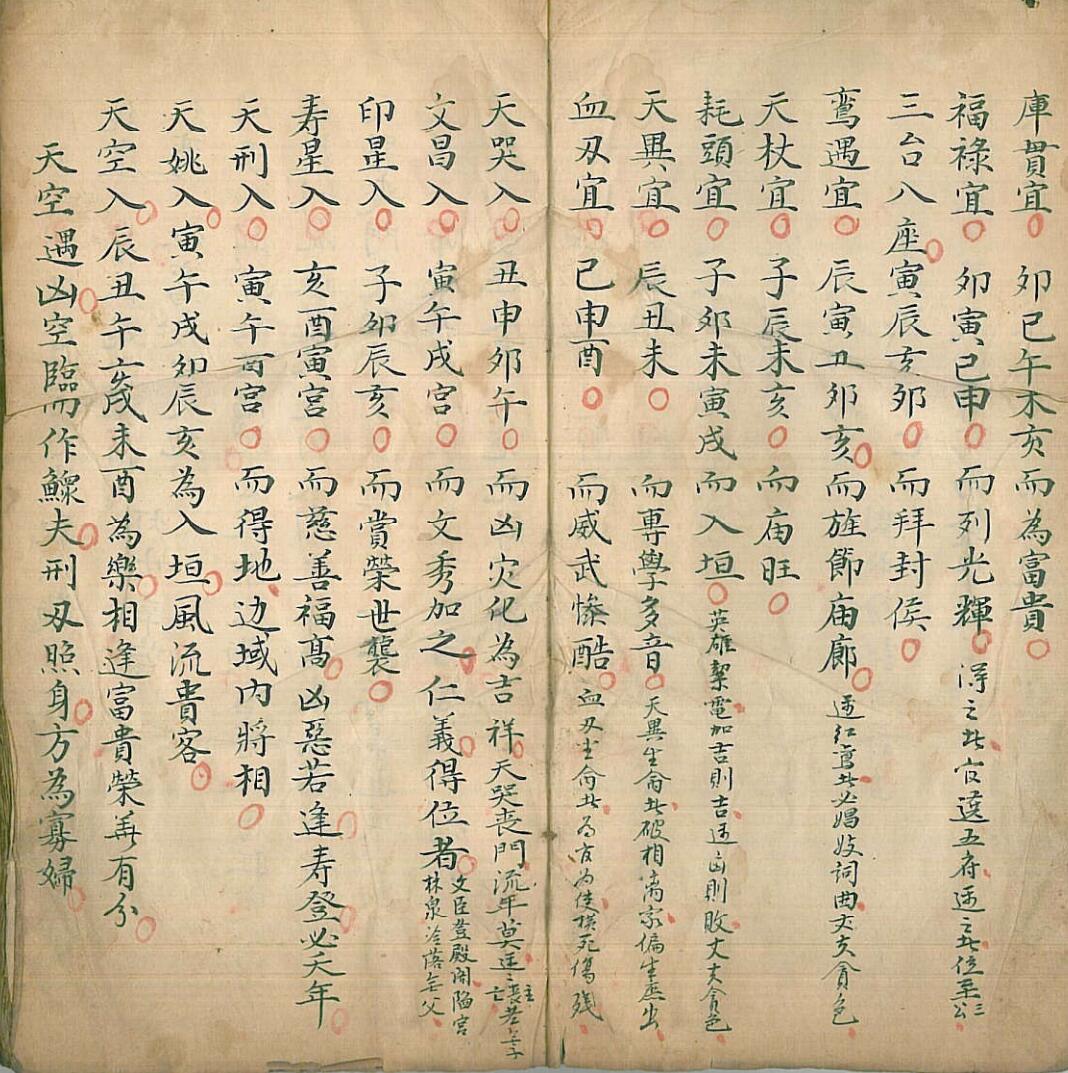 庫貫宜 卯巳午木亥而為富貴
福祿宜 卯寅巳申 而列光輝 得之此官選五府逆之此位至三公
三台八座寅辰亥卯 而拜封侯
鸞遇宜 辰寅丑卯亥而旌節庙廊 逆红鸾此必娼妓詞曲丈夫貪色
天杖宜 子辰未亥 而庙旺
耗頭宜 子卯未寅戌而入垣 英雄絜電加吉則吉逆凶則敗丈夫貪色
天異宜 辰丑未 而專學多音 天異生命此破相离家偏生庶出
血刃宜 巳申酉 而威武慘酷 血刃坐命此横死傷残
天哭入 丑申卯午 而凶灾化為吉祥 天哭喪門流年莫逆
文昌入 寅午戌宫 而文秀加之仁義得位者 文臣登殿閑陷宫林泉冷落無父
印星入 子卯辰亥 而賞榮世襲
寿星入 亥酉寅宫 而慈善福高凶惡若逢寿登必夭年
天刑入 寅午酉宫 而得地边域内將相
天姚入寅午戌卯辰亥為入垣風流貴客
天空入辰丑午亥戌未酉為樂相逢富貴榮華有分
天空遇凶空臨而作鰥夫刑刃照身方為寡婦